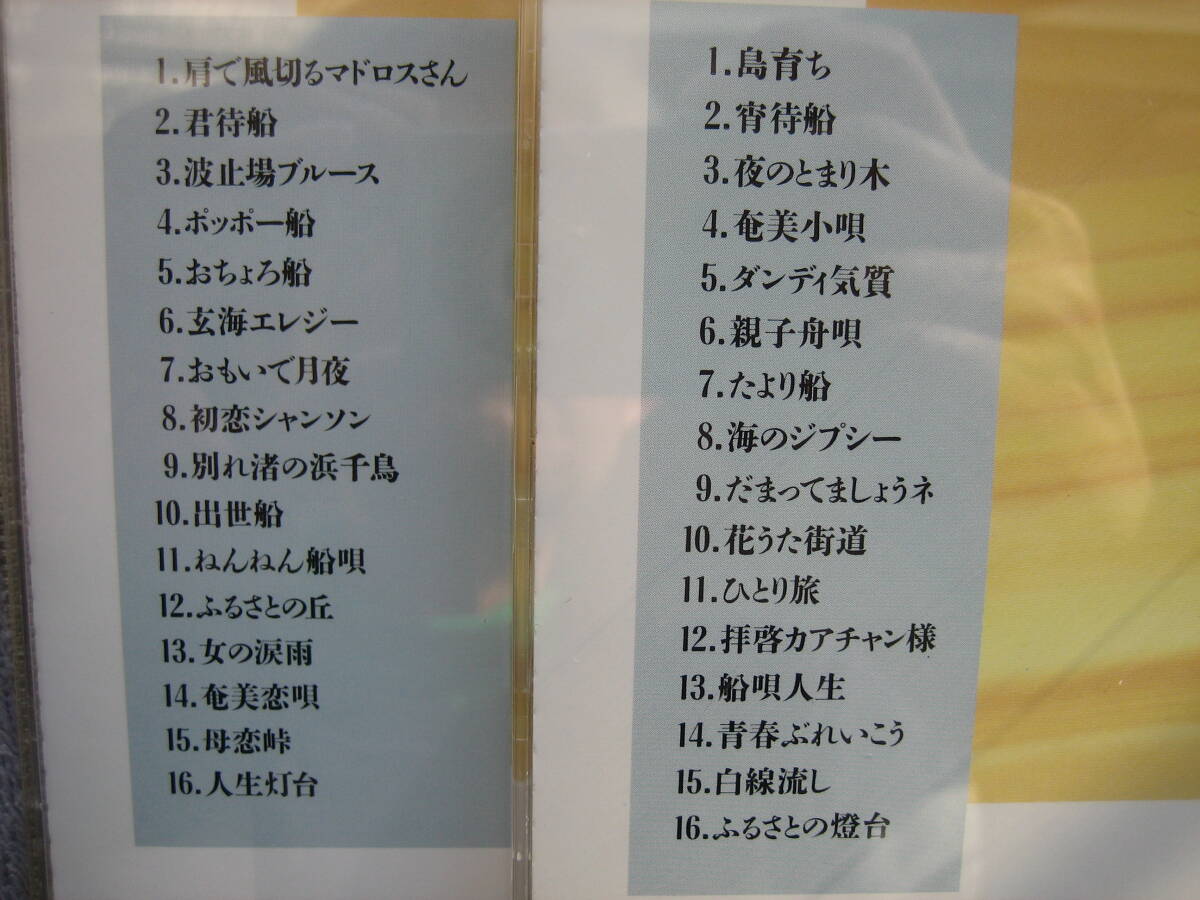 1.肩で風切るマドロスさん
2.君待船
3.波止場ブルース
4.ポッポー船
5.おちょろ船
6.玄海エレジー
7.おもいで月夜
8.初恋シャンソン
9.別れ渚の浜千鳥
10.出世船
11.ねんねん船唄
12.ふるさとの丘
13.女の涙雨
14.奄美恋唄
15.母恋峠
16.人生灯台
1.島育ち
2.宵待船
3.夜のとまり木
4.奄美小唄
5.ダンディ気質
6.親子舟唄
7.たより船
8.海のジプシー
9.だまってましょうネ
10.花うた街道
11.ひとり旅
12.拝啓カアチャン様
13.船唄人生
14.青春ぶれいこう
15.白線流し
16.ふるさとの燈台